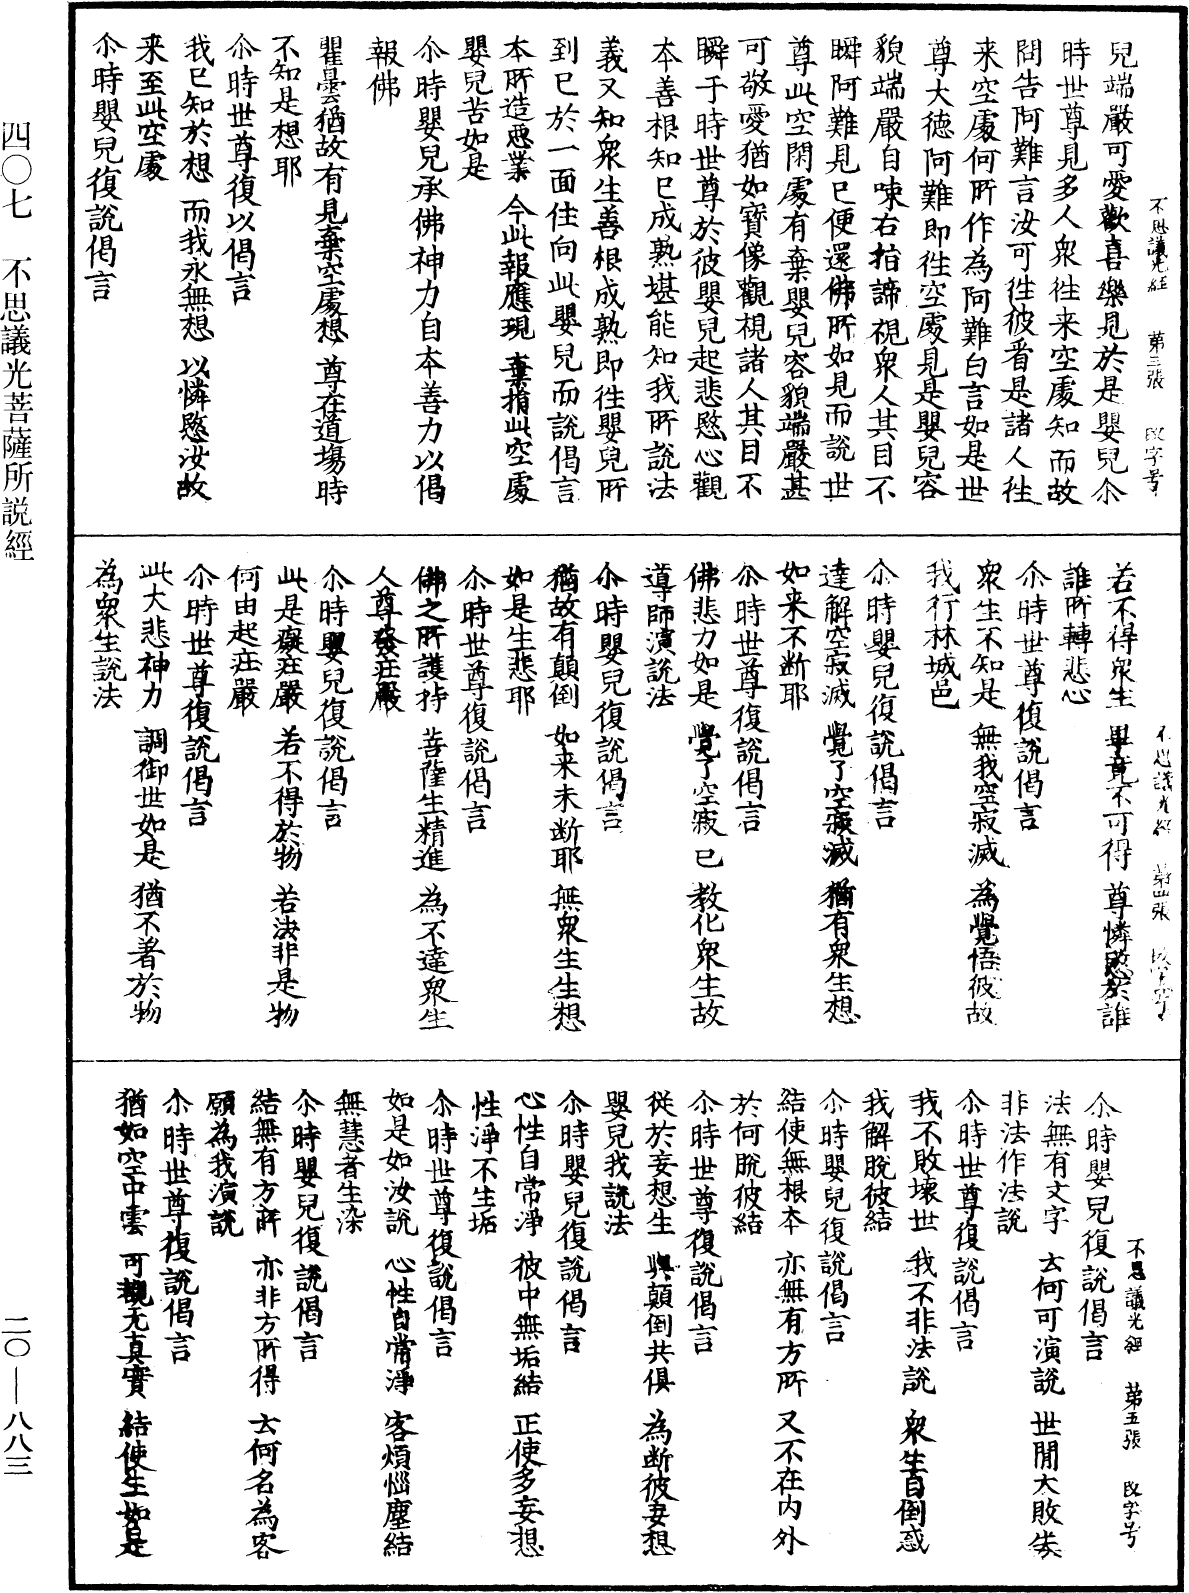 四〇七　不思議光菩薩所説經
二〇—八八三
不思議光經　第三張　改字号
兒端嚴可愛歡喜樂見於是嬰兒尒
時世尊見多人衆往来空處知而故
問告阿難言汝可徃彼看是諸人徃
来空處何所作為阿難白言如是世
尊大德阿難即徃空處見是嬰兒容
貌端嚴自味右指諦視衆人其目不
瞬阿難見已便還佛所如見而說世
尊此空閑處有棄嬰兒容貌端嚴甚
可敬愛猶如寶像觀視諸人其目不
瞬于時世尊於彼嬰兒起悲愍心觀
本善根知已成熟堪能知我所說法
義又知衆生善根成熟即徃嬰兒所
到已於一面住向此嬰兒而說偈言
本所造惡業　今此報應現　棄捐此空處
嬰兒苦如是
尒時嬰兒承佛神力自本善力以偈
報佛
瞿曇猶故有　見棄空處想　尊在道場時
不知是想耶
尒時世尊復以偈言
我已知於想　而我永無想　以憐愍汝故
来至此空處
尒時嬰兒復說偈言
不思議光經　第四張　改字号
若不得衆生　畢竟不可得　尊憐愍於誰
誰所轉悲心
尒時世尊復說偈言
衆生不知是　無我空寂滅　為覺悟彼故
我行林城邑
尒時嬰兒復說偈言
達解空寂滅　覺了空寂滅　猶有衆生想
如来不断耶
尒時世尊復說偈言
佛悲力如是　覺了空寂已　教化衆生故
導師演說法
尒時嬰兒復說偈言
猶故有顛倒　如来未断耶　無衆生生想
如是生悲耶
尒時世尊復說偈言
佛之所護持　菩薩生精進　為不達衆生
人尊發莊嚴
尒時嬰兒復說偈言
此是癡莊嚴　若不得於物　若決非是物
何由起莊嚴
尒時世尊復說偈言
此大悲神力　調御世如是　猶不著於物
為衆生說法
不思議光經　第五張　改字号
尒時嬰兒復說偈言
法無有文字　云何可演說　世間大敗失
非法作法說
尒時世尊復說偈言
我不敗壞世　我不非法說　衆生自倒惑
我解脫彼結
尒時嬰兒復說偈言
結使無根本　亦無有方所　又不在内外
於何脫彼結
尒時世尊復說偈言
從於妄想生　與顛倒共俱　為断彼妻想
嬰兒我說法
尒時嬰兒復說偈言
心性自常淨　彼中無垢結　正使多妄想
性淨不生垢
尒時世尊復說偈言
如是如汝說　心性自常淨　客煩惱塵結
無慧者生染
尒時嬰兒復說偈言
結無有方所　亦非方所得　云何名為客
願為我演說
尒時世尊復說偈言
猶如空中雲　可觀无真實　結使生如是